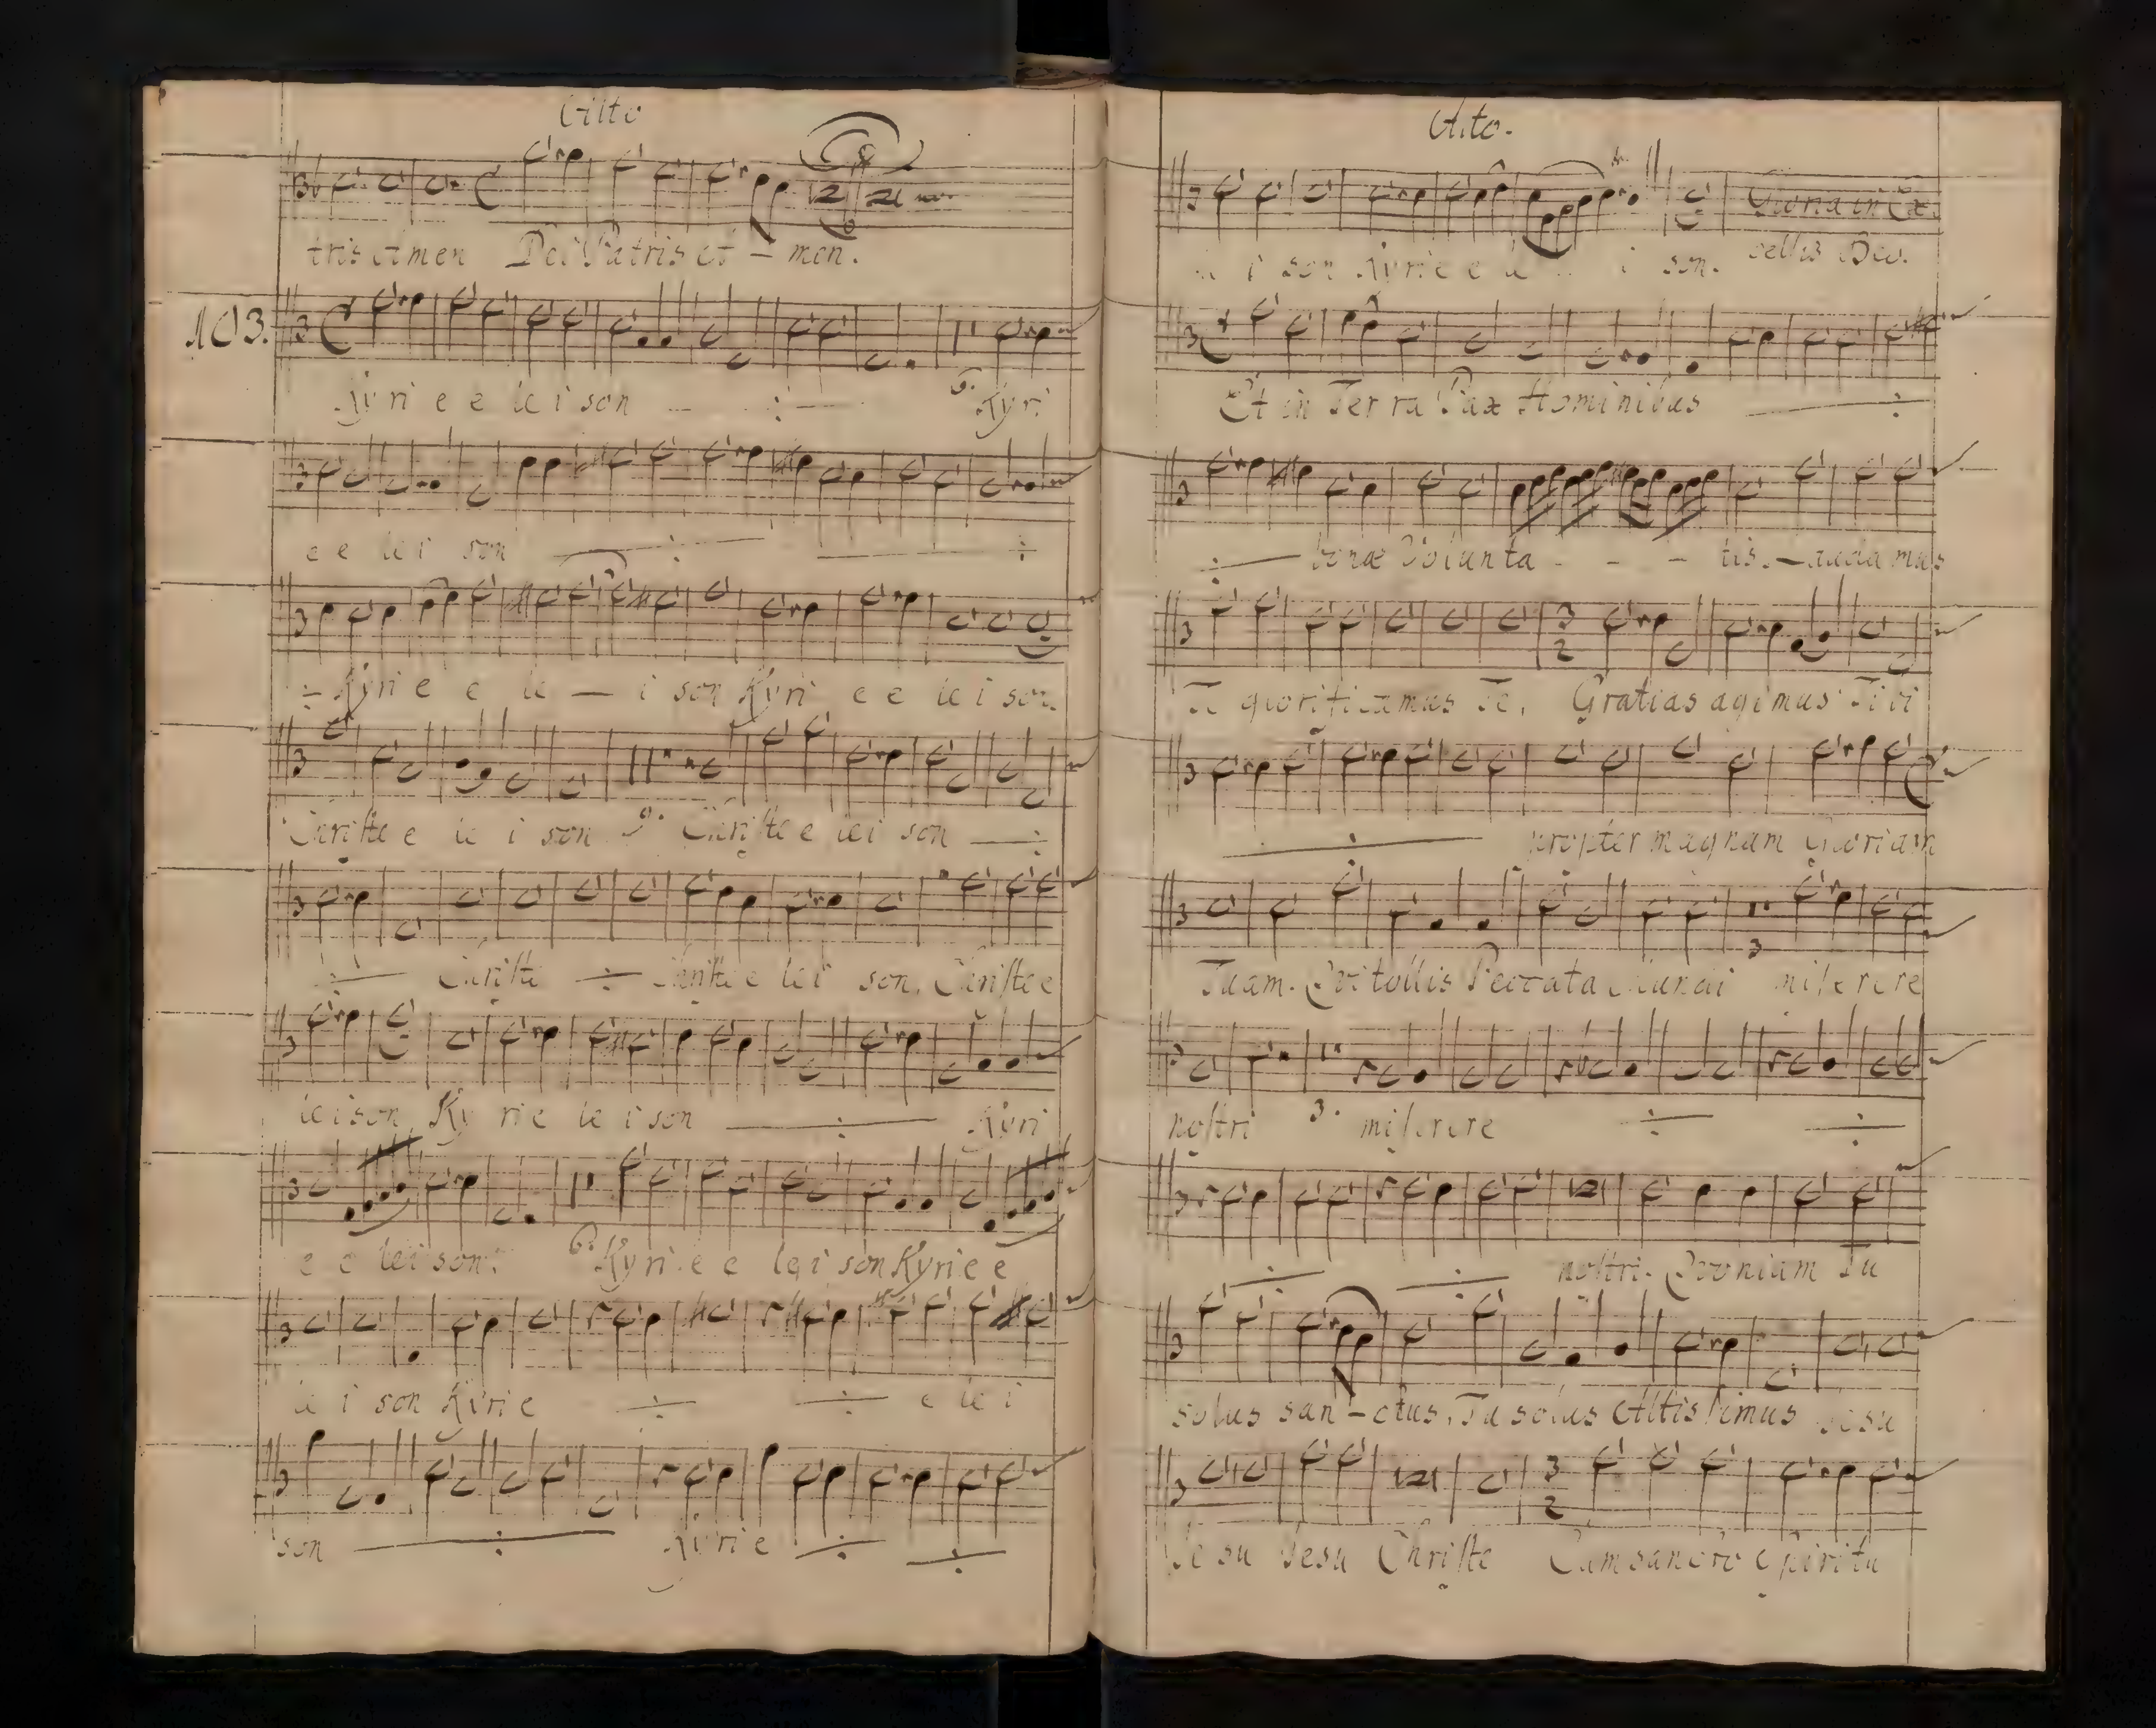 Alto
tris Amen Dei Patris A – men.
103.
Kyri e e le i son — ÷ — 9. Kyri
e e le i son — ÷ — — ÷
÷ Kyri e e le — i son Kyri e e le i son.
Christe e le i son 9. Christe e lei son — ÷
÷ — Christe — ÷ — Christe e lei son. Christe e
leison. Ky rie le i son — ÷ — Kyri
e e lei son. 6. Kyri e e lei son Kyrie e
le i son Kyrie — ÷ — ÷ — e le i
son — ÷ — Kyrie — ÷ — — ÷ —
Alto.
Gloria in Ex.
i son Kyrie e le i son. cellis Deo.
Et in Terra Pax Hominibus — ÷
÷ — bonæ Volunta - - - tis. — Laudamus
Te glorificamus Te. Gratias agimus Tibi
— ÷ — propter magnam Gloriam
Tuam. Qui tollis Peccata Mundi miserere
3
nostri 3. miserere — ÷ — — ÷ —
— ÷ — — ÷ — nostri. Quoniam Tu
solus san – ctus. Tu solus Altissimus Jesu
3
2
Jesu Jesu Christe Cum sancto spiritu